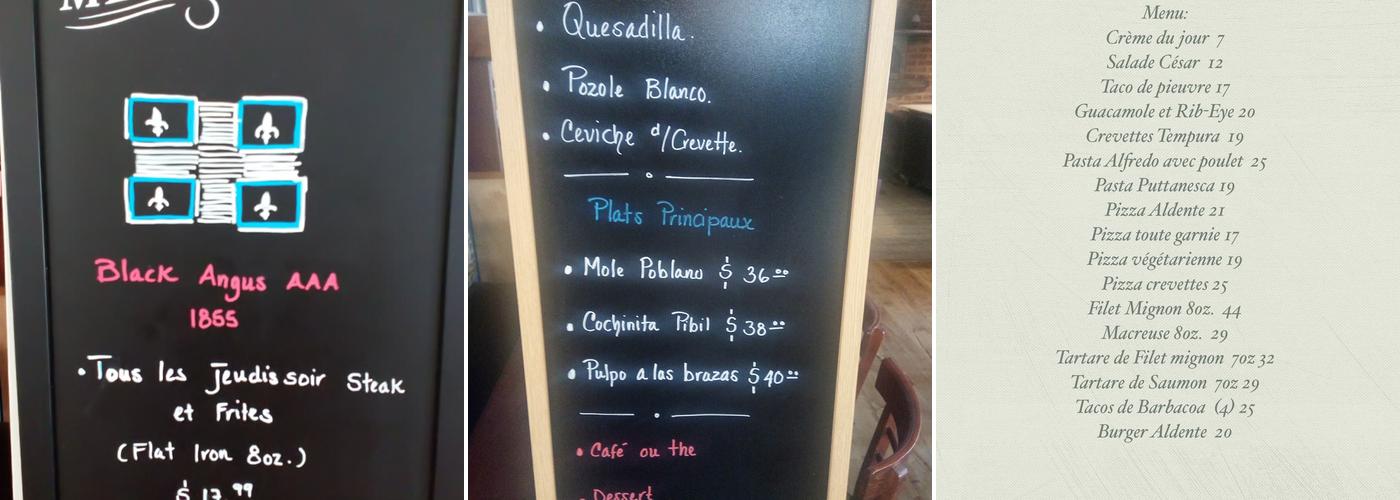 Black Angus AAA
1855
• Tous les Jeudis soir Steak
et Frites
(Flat Iron 8oz.)
$ 17.99
• Quesadilla.
• Pozole Blanco.
• Ceviche d/Crevette.
Plats Principaux
• Mole Poblano $ 36.00
• Cochinita Pibil $ 38.00
• Pulpo a las brazas $ 40.00
• Café ou the
• Dessert
Menu:
Crème du jour 7
Salade César 12
Taco de pieuvre 17
Guacamole et Rib-Eye 20
Crevettes Tempura 19
Pasta Alfredo avec poulet 25
Pasta Puttanesca 19
Pizza Aldente 21
Pizza toute garnie 17
Pizza végétarienne 19
Pizza crevettes 25
Filet Mignon 8oz. 44
Macreuse 8oz. 29
Tartare de Filet mignon 7oz 32
Tartare de Saumon 7oz 29
Tacos de Barbacoa (4) 25
Burger Aldente 20